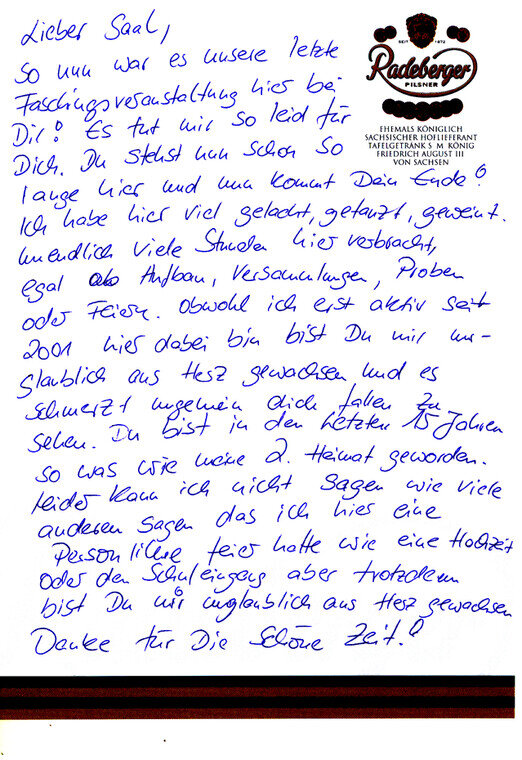 Lieber Saal,
so nun war es unsere letzte
Faschingsveranstaltung hier bei
Dir! Es tut mir so leid für
Dich. Du stehst nun schon so
lange hier und nun kommt Dein Ende!
Ich habe hier viel gelacht, getanzt, geweint.
unendlich viele Stunden hier verbracht,
egal ob Aufbau, Versammlungen, Proben
oder Feiern. Obwohl ich erst aktiv seit
2001 hier dabei bin bist Du mir un-
glaublich ans Herz gewachsen und es
schmerzt ungemein dich fallen zu
sehen. Du bist in den letzten 15 Jahren
so was wie meine 2. Heimat geworden.
leider kann ich nicht sagen wie viele
anderen sagen das ich hier eine
Persönliche feier hatte wie eine Hochzeit
oder den Schuleingang aber trotzdem
bist Du mir unglaublich ans Herz gewachsen
Danke für Die Schöne Zeit!
SEIT 1872
Radeberger
PILSNER
EHEMALS KÖNIGLICH
SÄCHSISCHER HOFLIEFERANT
TAFELGETRÄNK S. M. KÖNIG
FRIEDRICH AUGUST III
VON SACHSEN